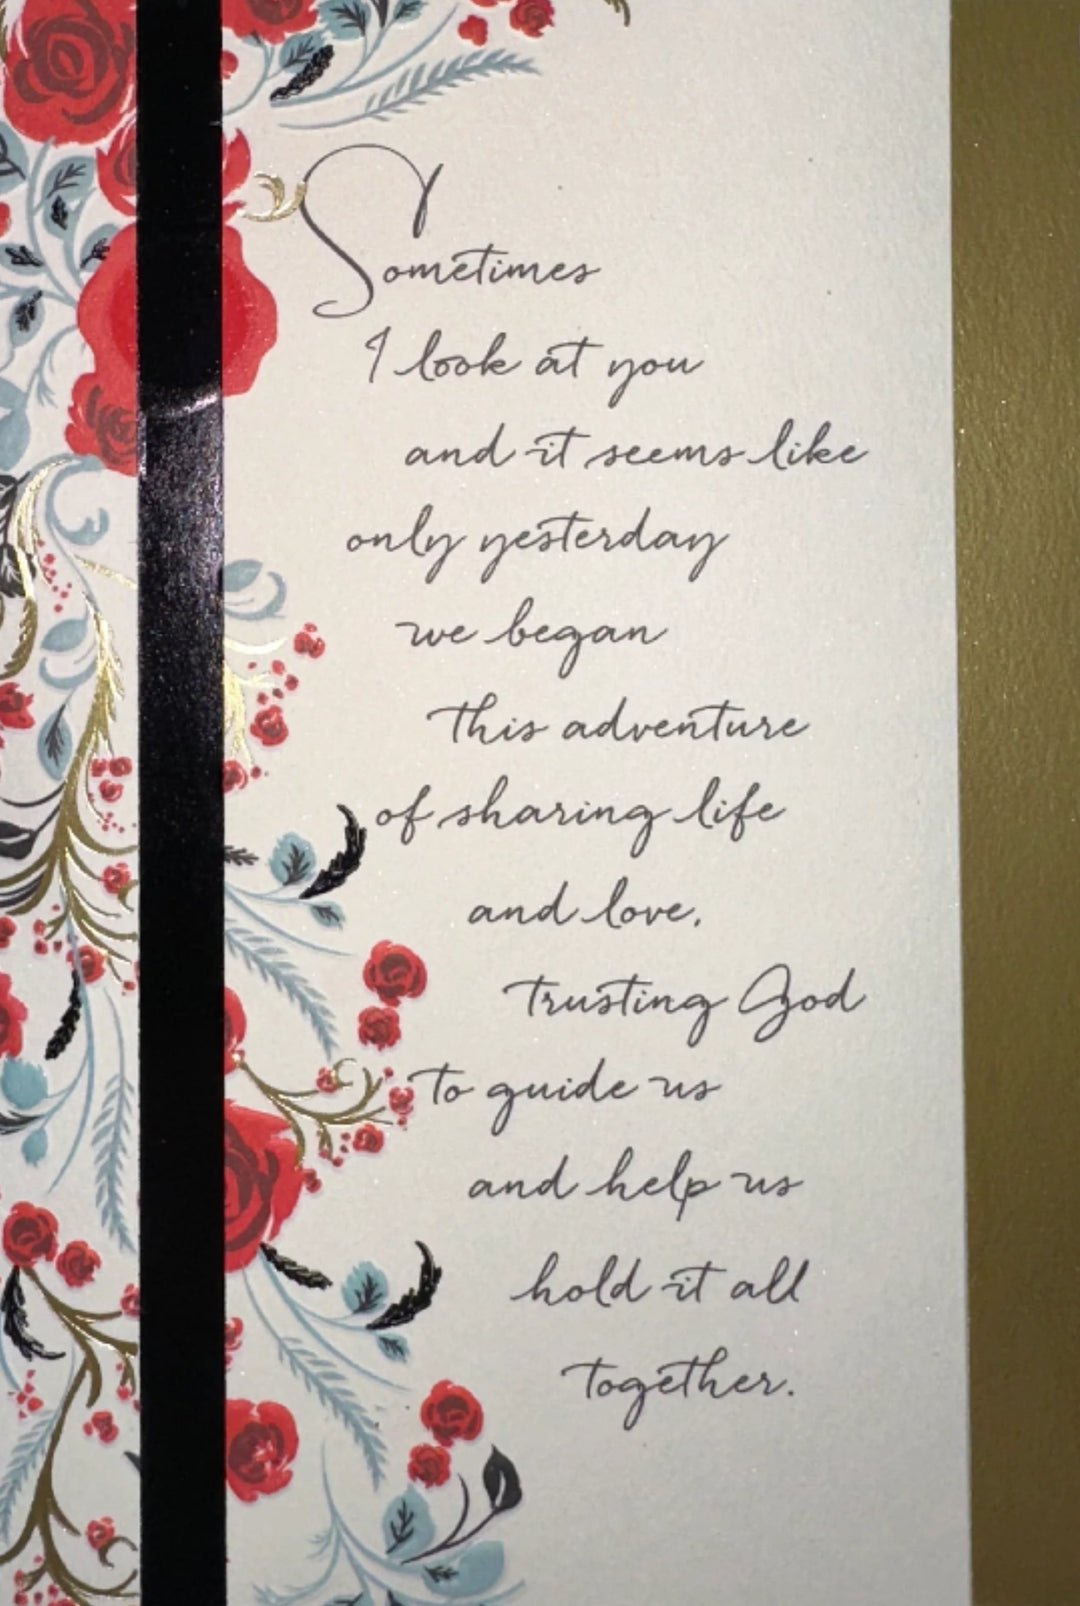 Sometimes
I look at you
and it seems like
only yesterday
we began
this adventure
of sharing life
and love,
trusting God
to guide us
and help us
hold it all
together.